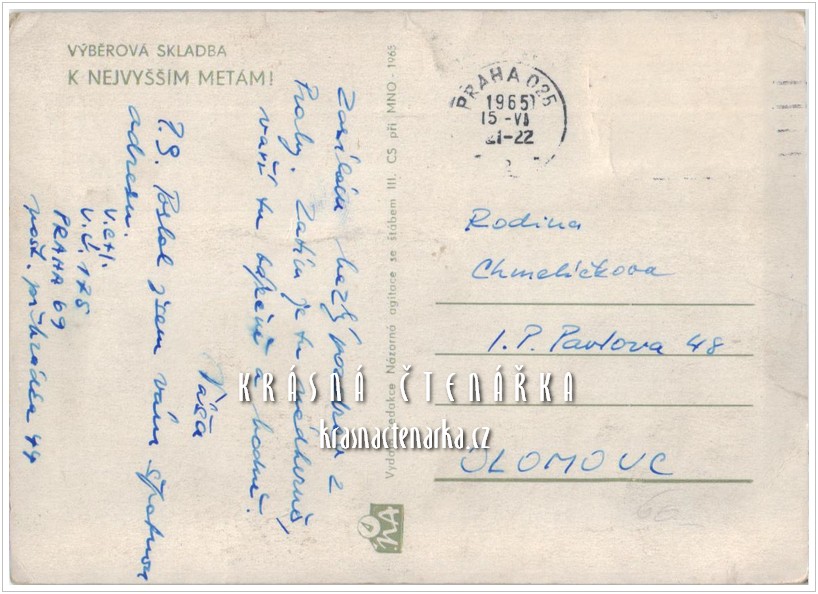 VÝBĚROVÁ SKLADBA
K NEJVYŠŠÍM METÁM!
Zasílám hezký pozdrav z
Prahy. Zatím je tu nádherně,
vaří tu a hodně.
Váša
P.S. Poslal jsem vám špatnou
adresu.
V.Ú. 175
PRAHA 69
pošt. přihrádka 44
Vydala redakce Názorná agitace se štábem III. CS při MNO - 1965
NA
PRAHA 025
1965
15 -VI
21-22
Rodina
Chmelíčkova
I. P. Pavlova 48
OLOMOUC
KRÁSNÁ ČTENÁŘKA
krasnactenarka.cz